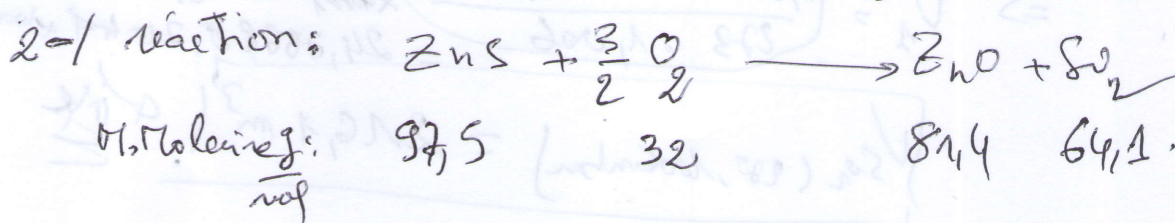 2-/ réaction: ZnS + 3/2 O2 → ZnO + SO2
M.Molaire g/mol: 97,5 32 81,4 64,1.